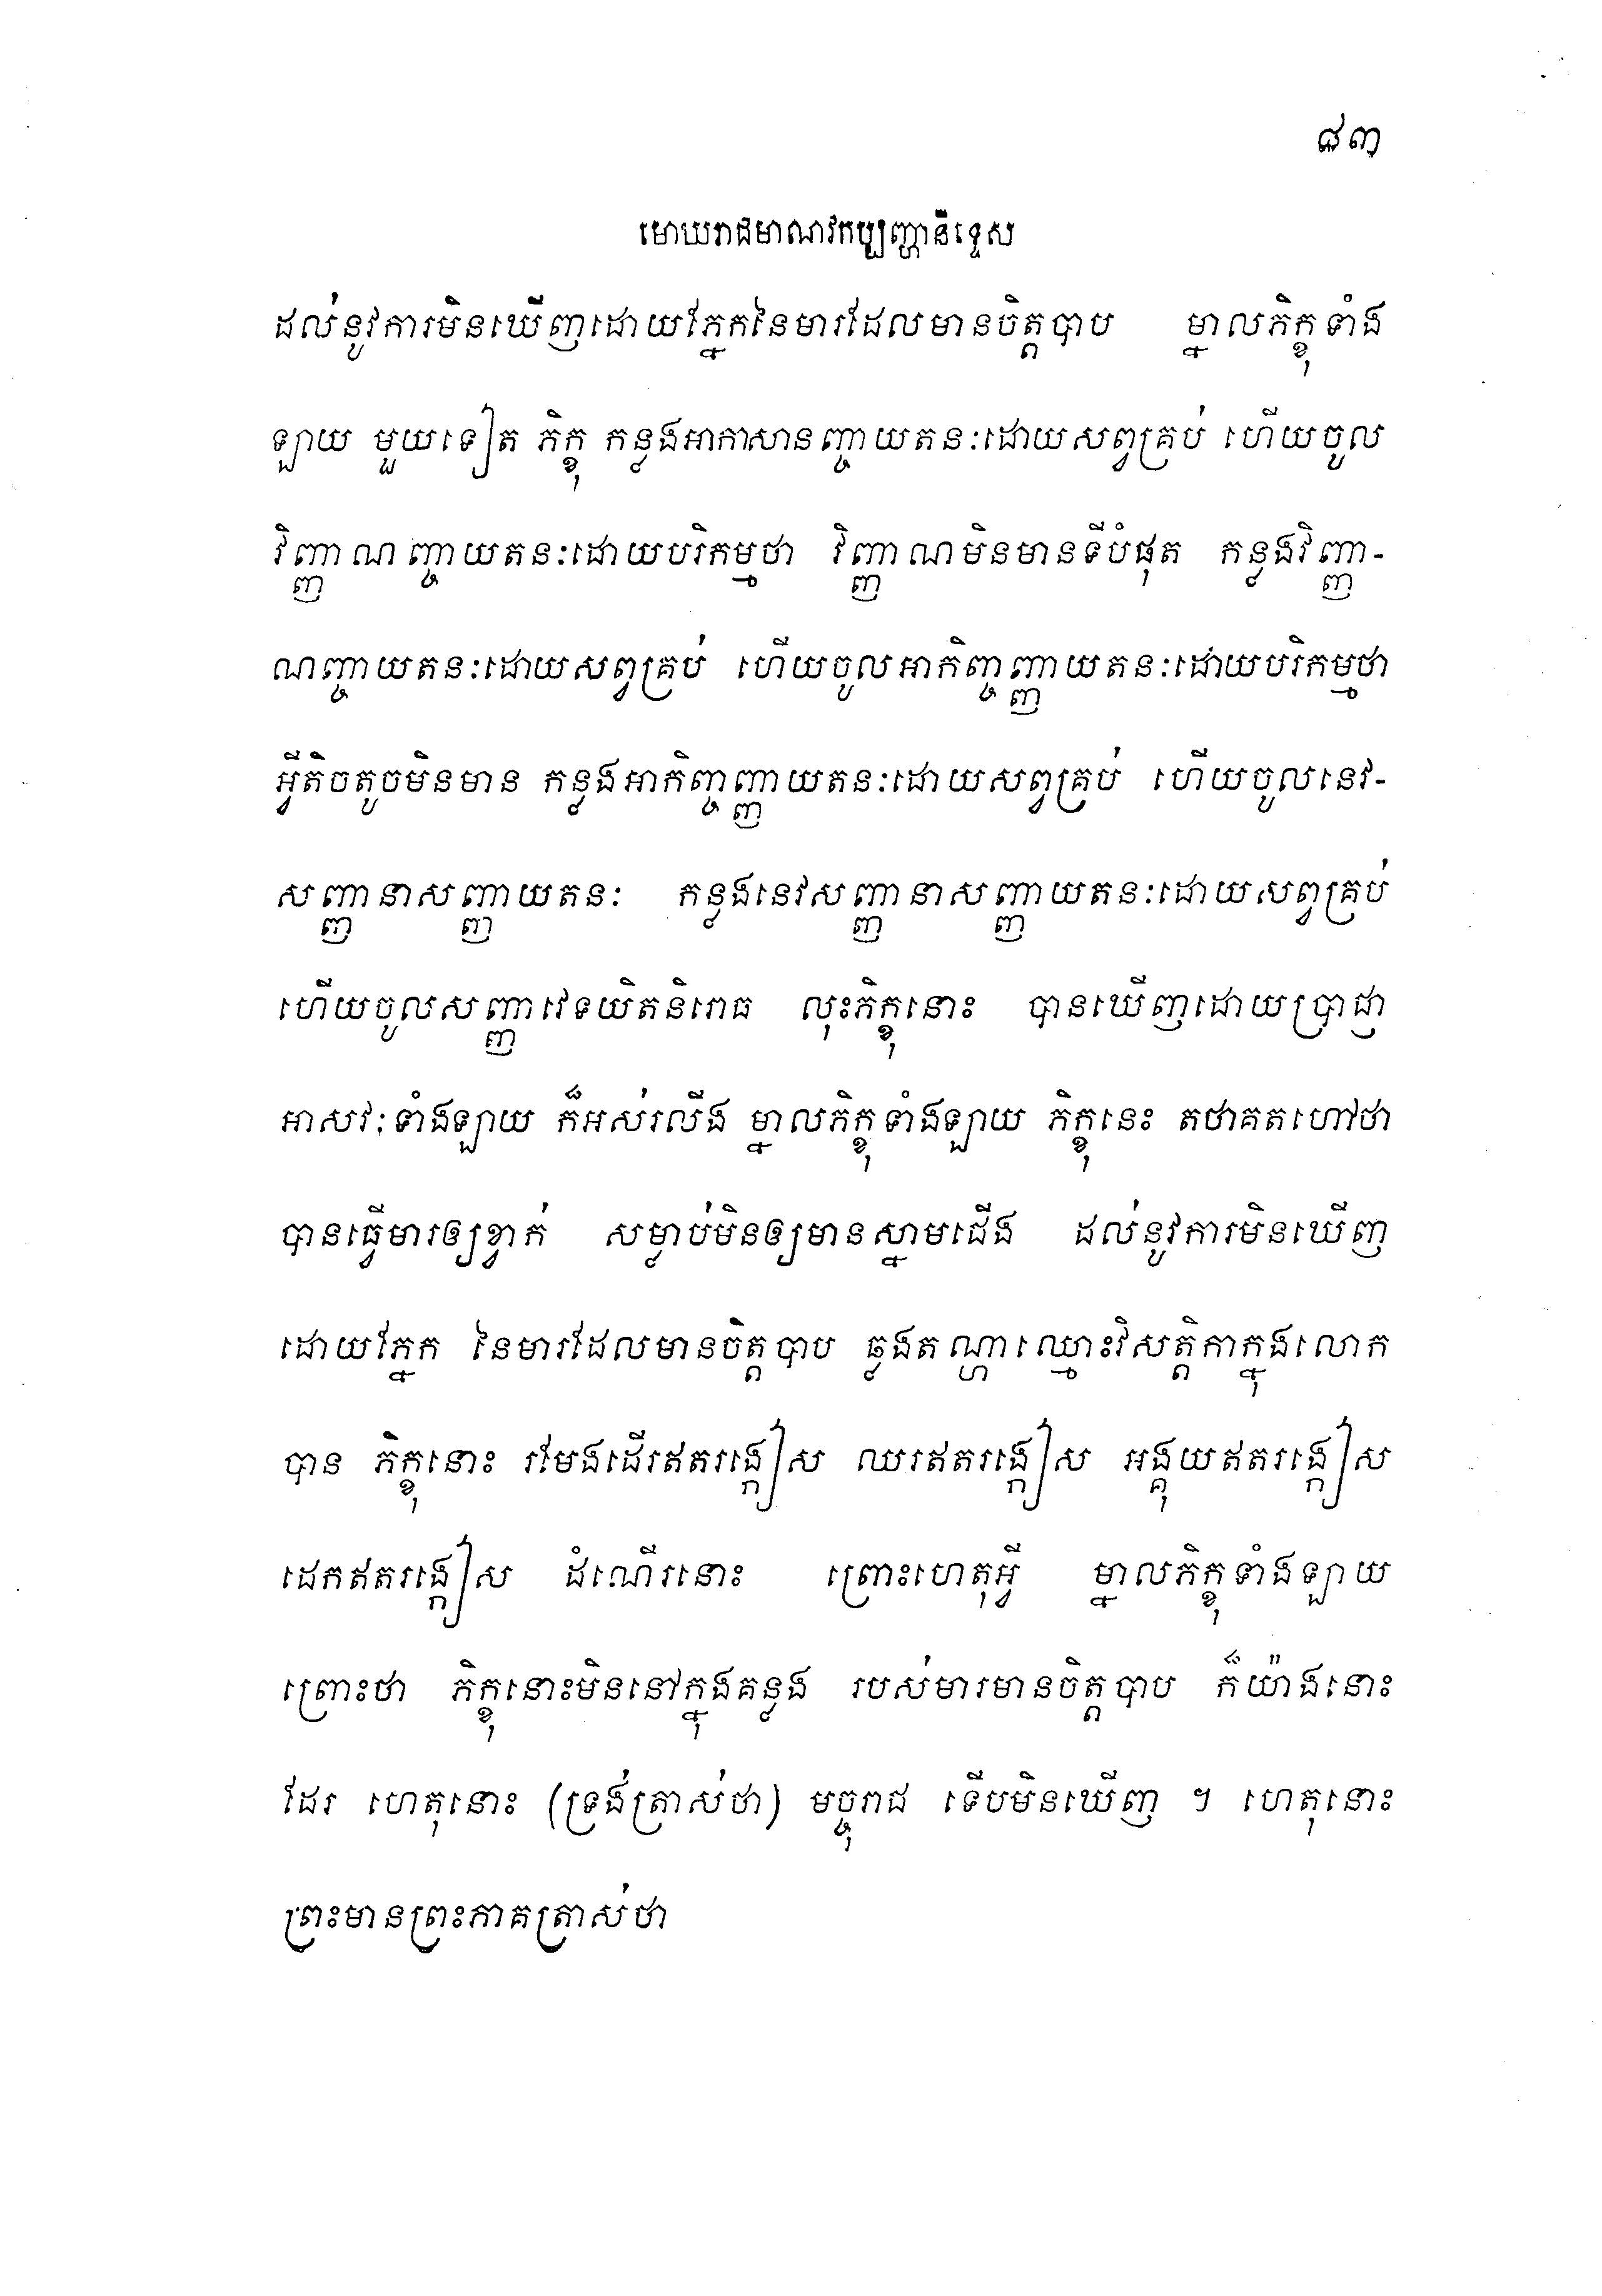 ៨៣
មោឃរាជមាណវកប្បញ្ហានិទ្ទេស
ដល់នូវការមិនឃើញដោយភ្នែកនៃមារដែលមានចិត្តបាប ម្នាលភិក្ខុទាំង
ឡាយ មួយទៀត ភិក្ខុ កន្លងអាកាសានញ្ចាយតនៈដោយសព្វគ្រប់ ហើយចូល
វិញ្ញាណញ្ចាយតនៈដោយបរិកម្មថា វិញ្ញាណមិនមានទីបំផុត កន្លងវិញ្ញា-
ណញ្ចាយតនៈដោយសព្វគ្រប់ ហើយចូលអាកិញ្ចញ្ញាយតនៈដោយបរិកម្មថា
អ្វីតិចតួចមិនមាន កន្លងអាកិញ្ចញ្ញាយតនៈដោយសព្វគ្រប់ ហើយចូលនេវ-
សញ្ញានាសញ្ញាយតនៈ កន្លងនេវសញ្ញានាសញ្ញាយតនៈដោយសព្វគ្រប់
ហើយចូលសញ្ញាវេទយិតនិរោធ លុះភិក្ខុនោះ បានឃើញដោយប្រាជ្ញា
អាសវៈទាំងឡាយ ក៏អស់រលីង ម្នាលភិក្ខុទាំងឡាយ ភិក្ខុនេះ តថាគតហៅថា
បានធ្វើមារឲ្យខ្វាក់ សម្លាប់មិនឲ្យមានស្នាមជើង ដល់នូវការមិនឃើញ
ដោយភ្នែក នៃមារដែលមានចិត្តបាប ឆ្លងតណ្ហាឈ្មោះវិសត្តិកាក្នុងលោក
បាន ភិក្ខុនោះ រមែងដើរឥតរង្កៀស ឈរឥតរង្កៀស អង្គុយឥតរង្កៀស
ដេកឥតរង្កៀស ដំណើរនោះ ព្រោះហេតុអ្វី ម្នាលភិក្ខុទាំងឡាយ
ព្រោះថា ភិក្ខុនោះមិននៅក្នុងគន្លង របស់មារមានចិត្តបាប ក៏យ៉ាងនោះ
ដែរ ហេតុនោះ (ទ្រង់ត្រាស់ថា) មច្ចុរាជ ទើបមិនឃើញ ។ ហេតុនោះ
ព្រះមានព្រះភាគត្រាស់ថា